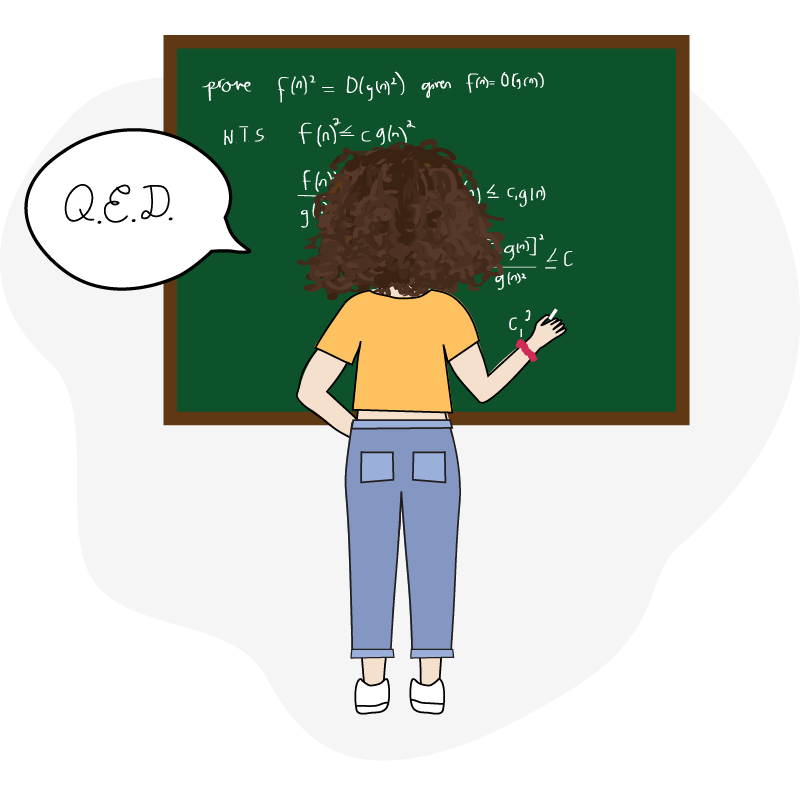 prove f(n)² = O(g(n)²) given f(n)=O(g(n))
NTS f(n)² ≤ c g(n)²
Q.E.D.
f(n)
g( ) ≤ c₁g(n)
g(n)]²
g(n)² ≤ C
C₁